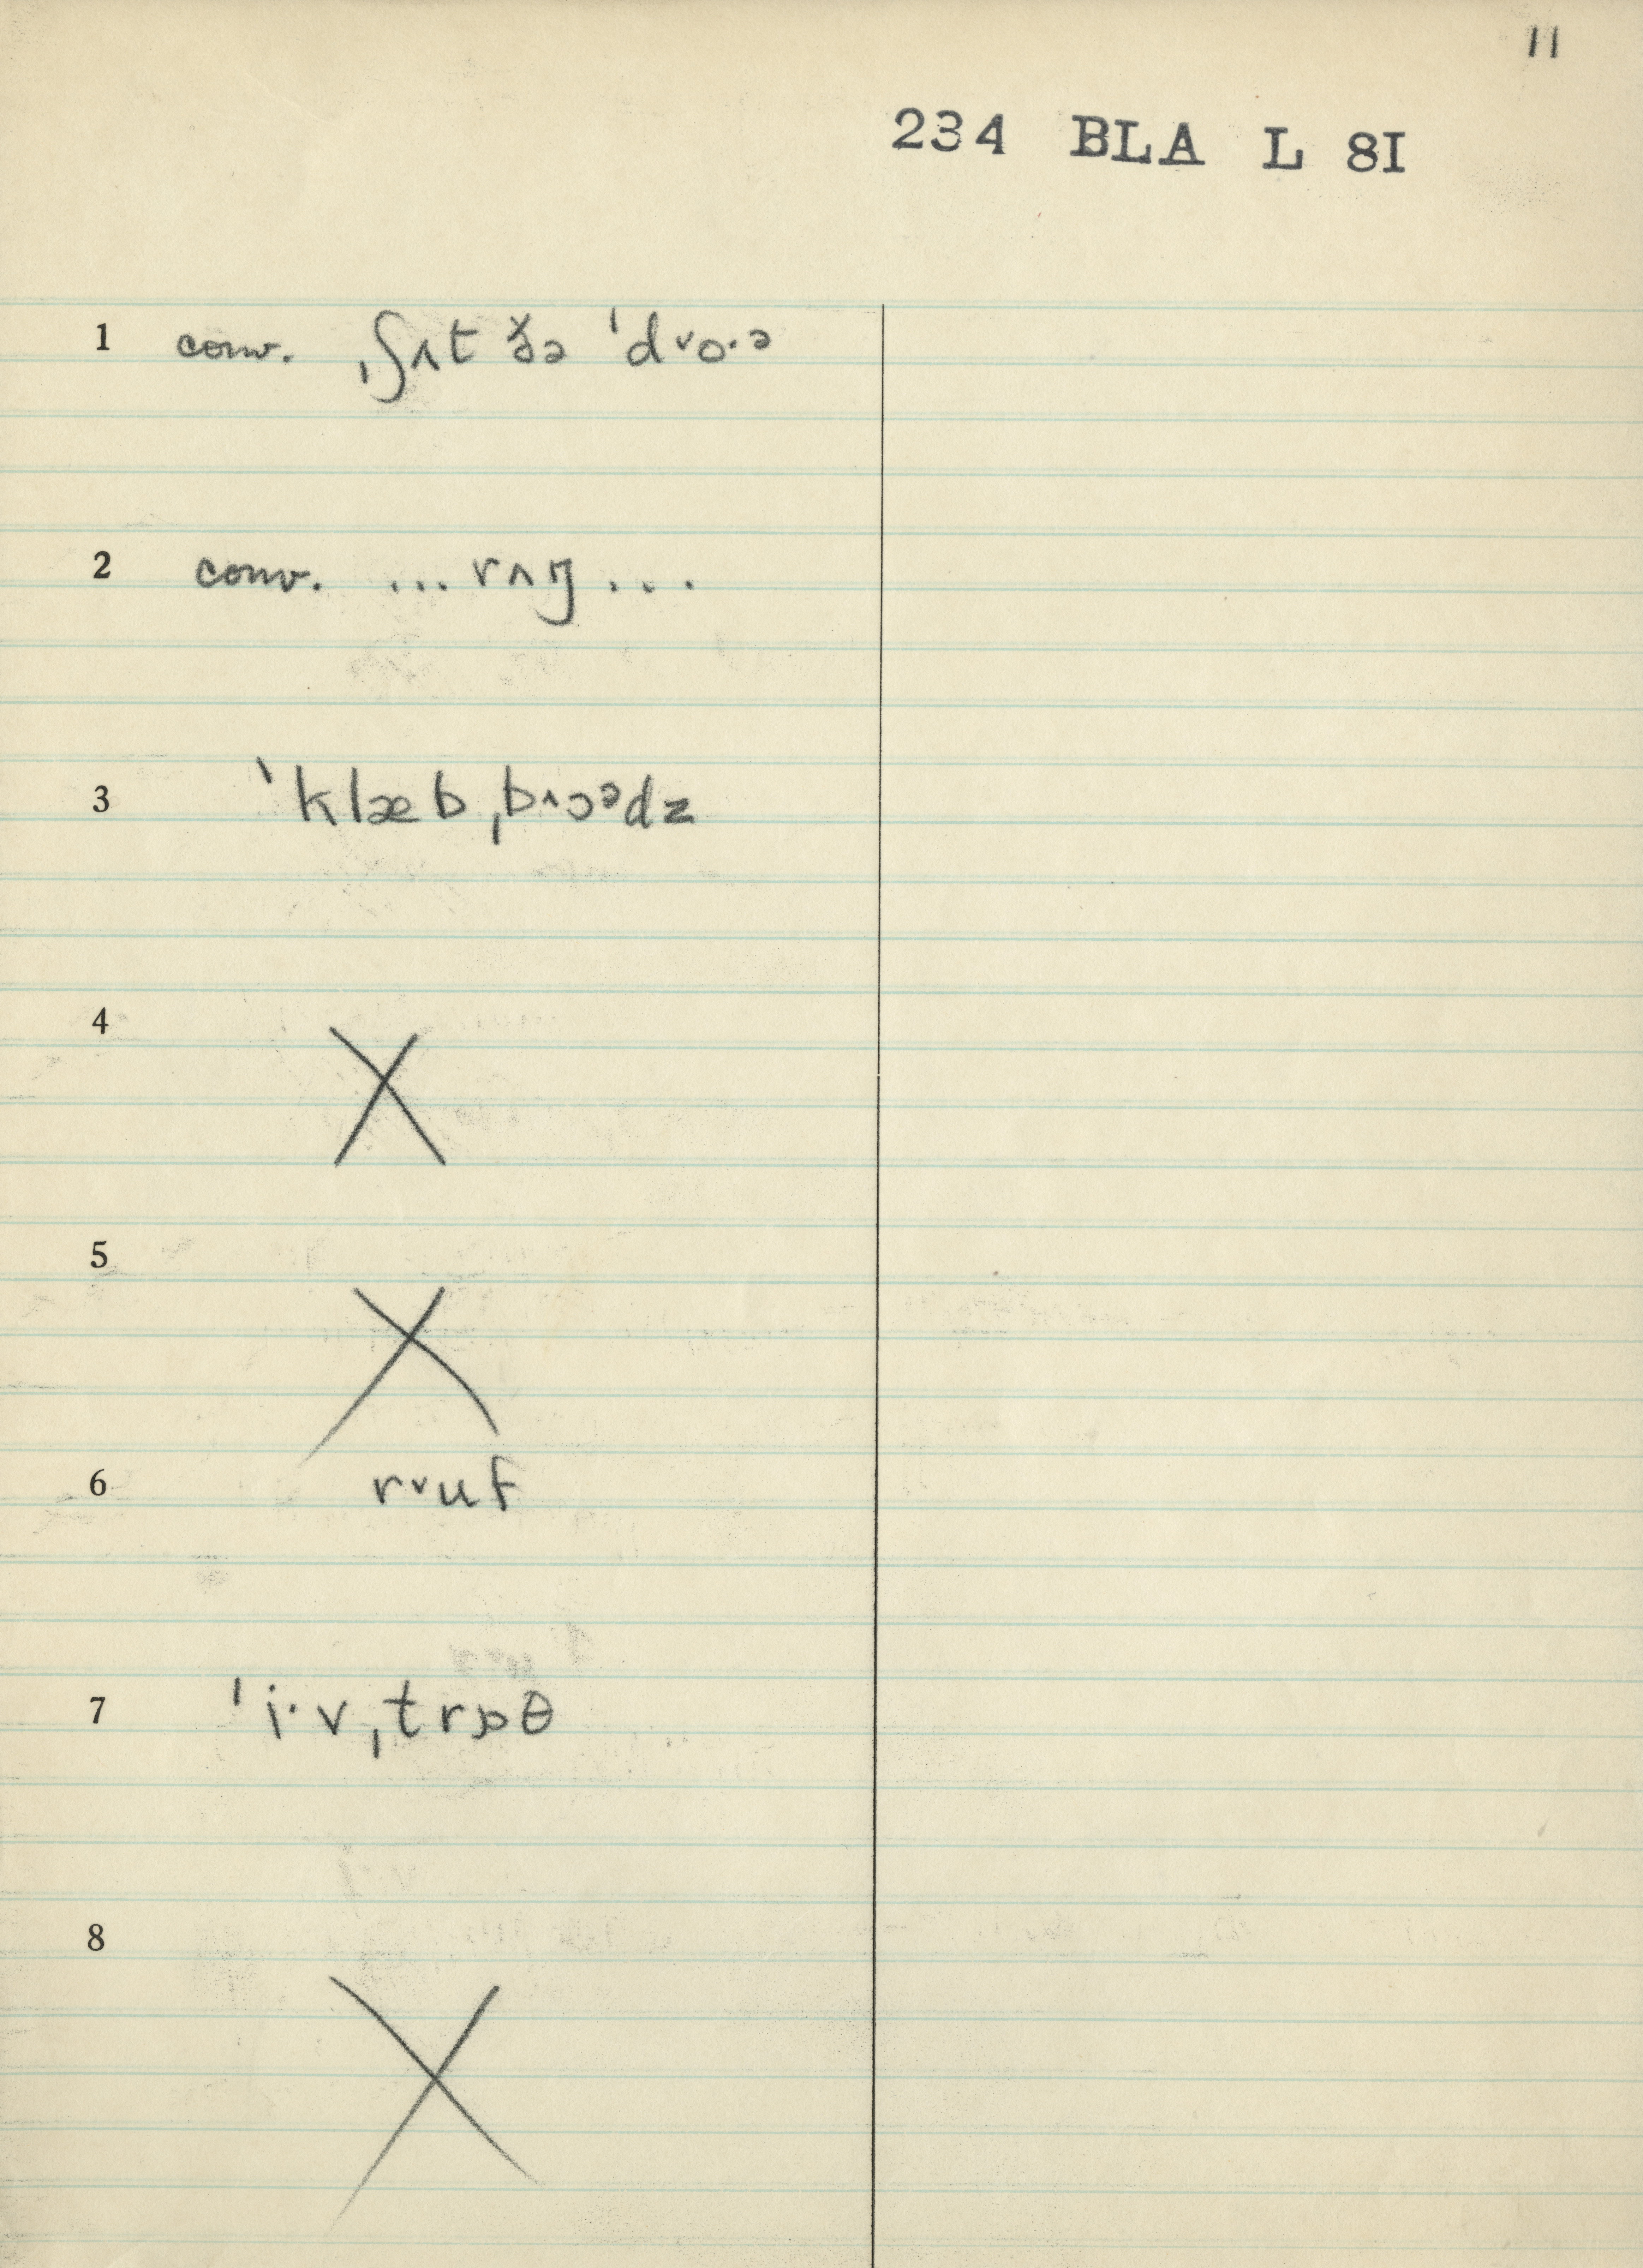 11
234 BLA L 8I
1 conv. ˌʃʌt ðə ˈd˅o·ə
2 conv. ... rʌŋ ...
3 ˈklæbˌb˄ɔᵊdz
4 X
5 X
6 r˅uf
7 ˈi·vˌtrɒθ
8 X